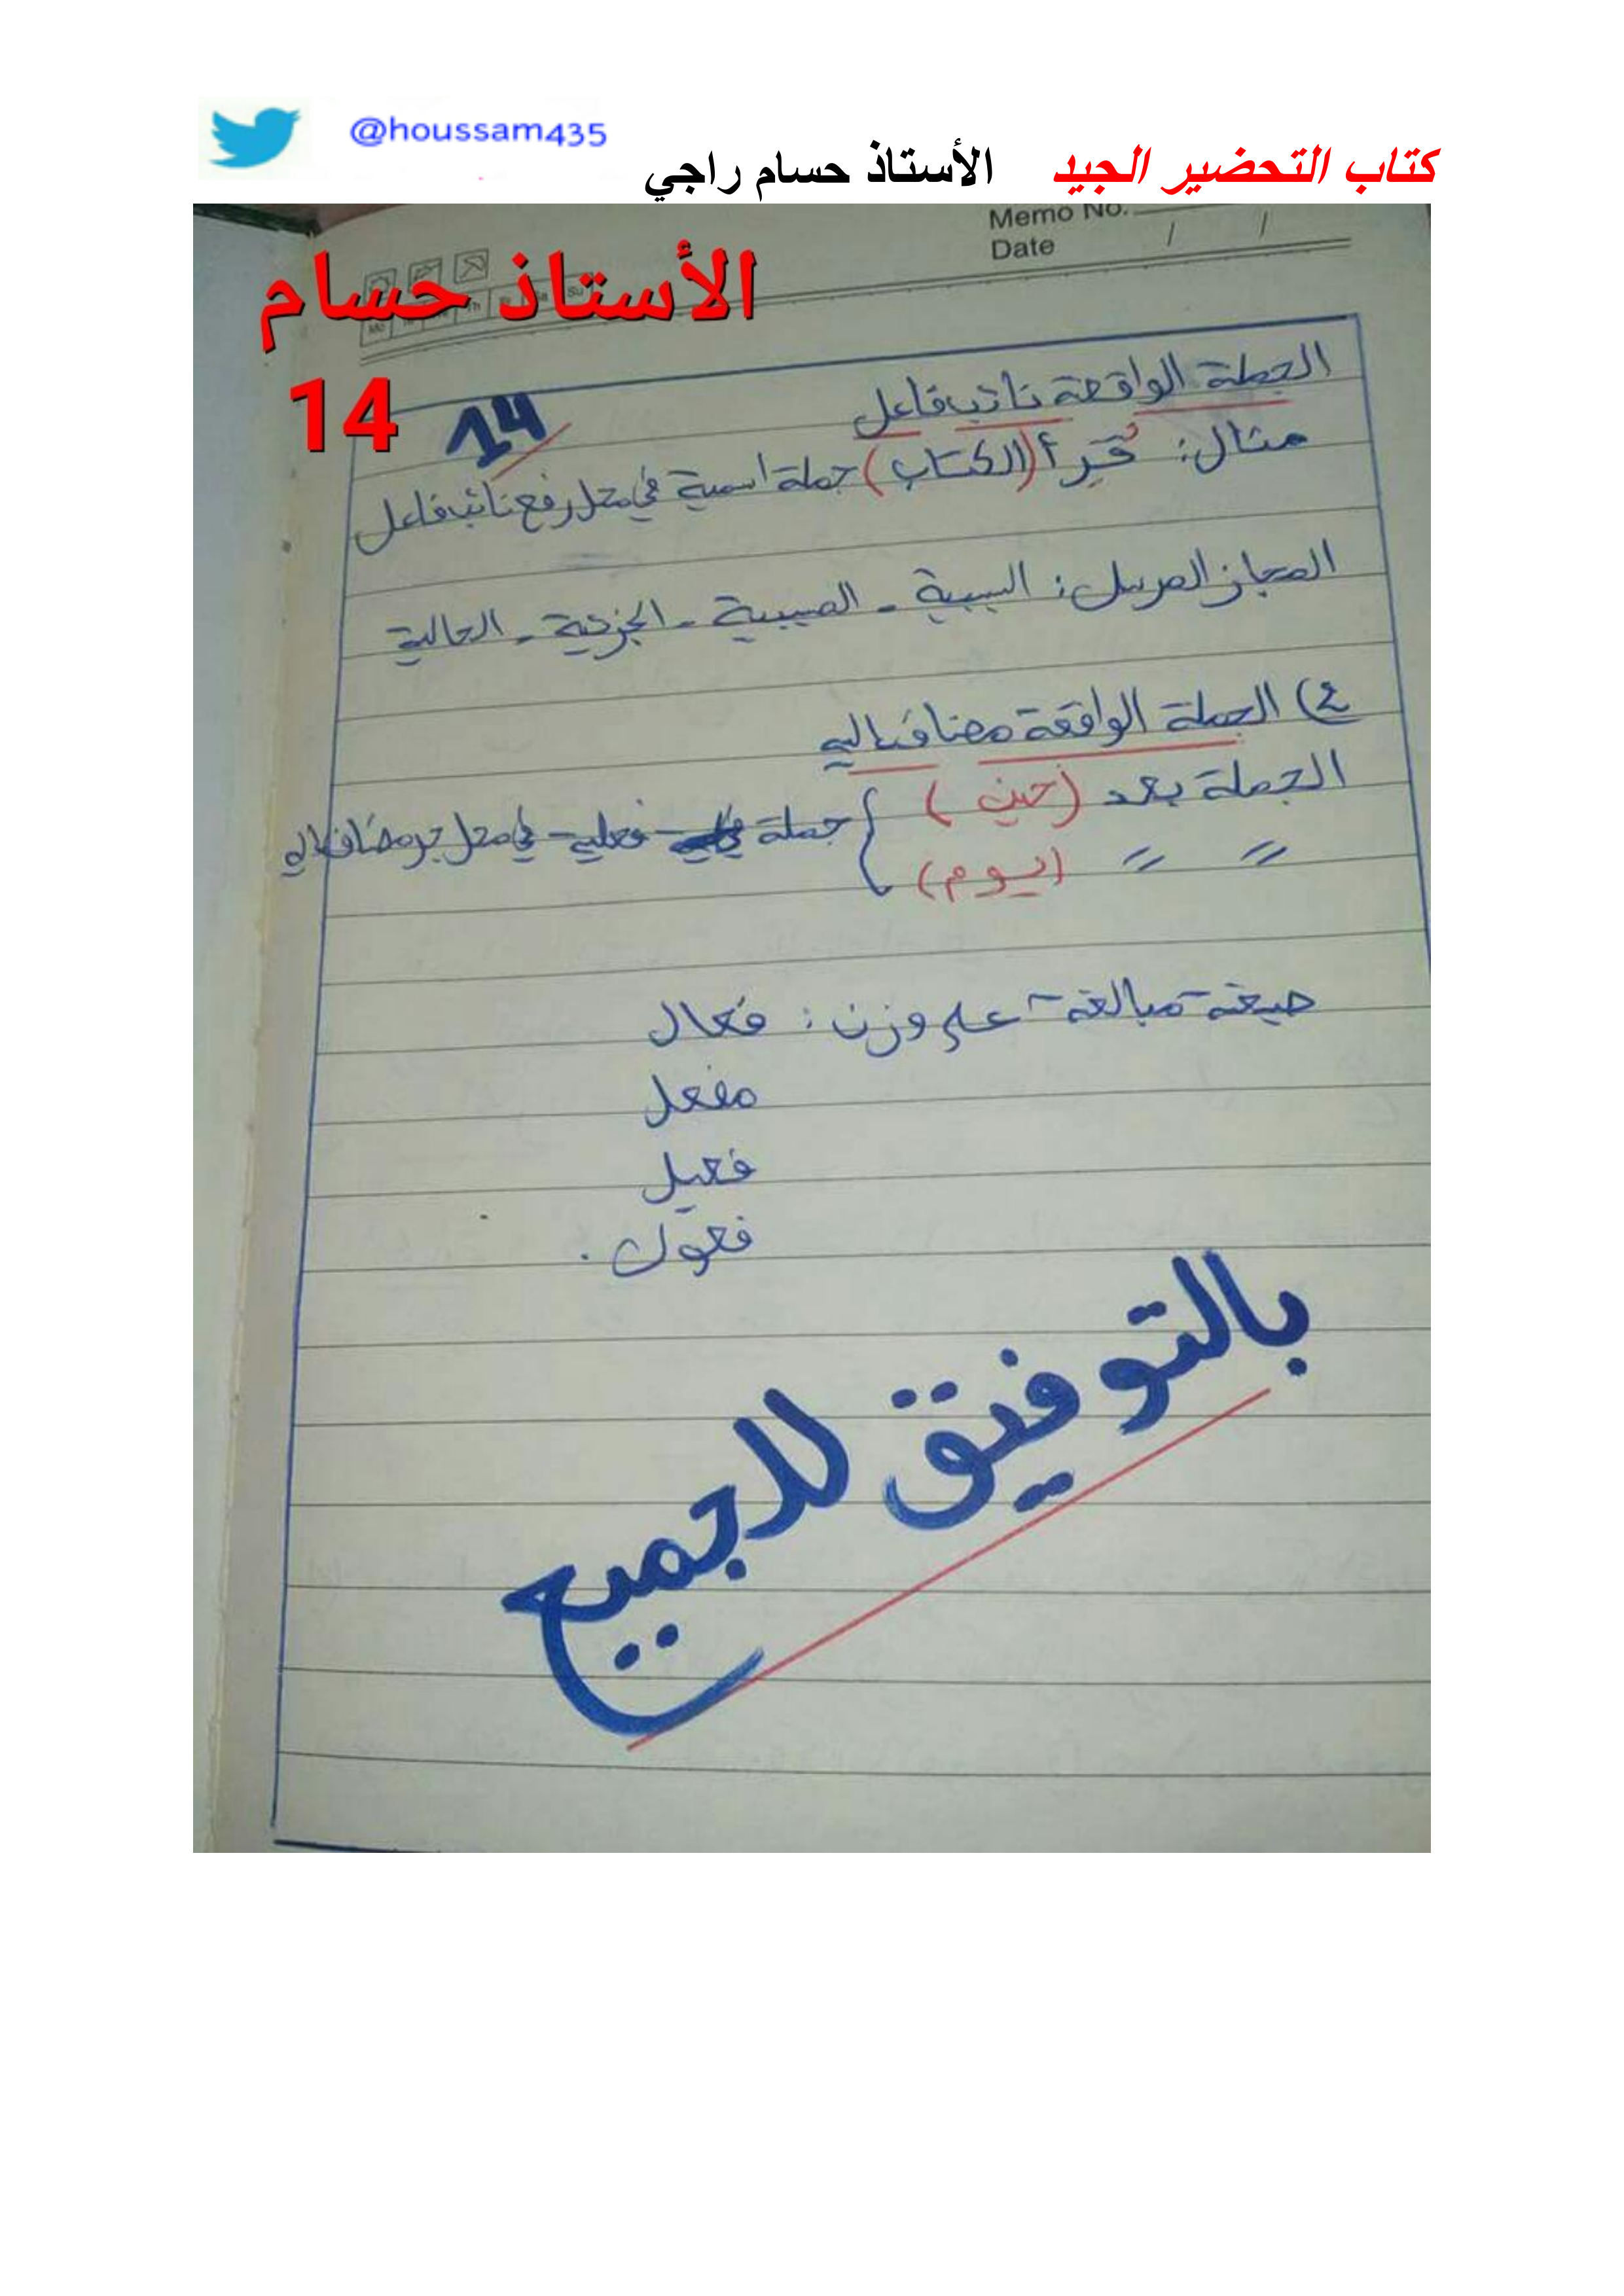 @houssam435
كتاب التحضير الجيد الأستاذ حسام راجي
Memo No.
Date / /
الأستاذ حسام
14
14
الجملة الواقعة نائب فاعل
مثال: قُرِأ (الكتاب) جملة اسمية في محل رفع نائب فاعل
المجاز المرسل: السببية - المسببية - الجزئية - الحالية
4) الجملة الواقعة مضاف إليه
الجملة بعد (حين) } جملة فعلية في محل جر مضاف إليه
〃 〃 (يوم)
صيغة مبالغة على وزن: فعال
مفعل
فعيل
فعول.
بالتوفيق للجميع